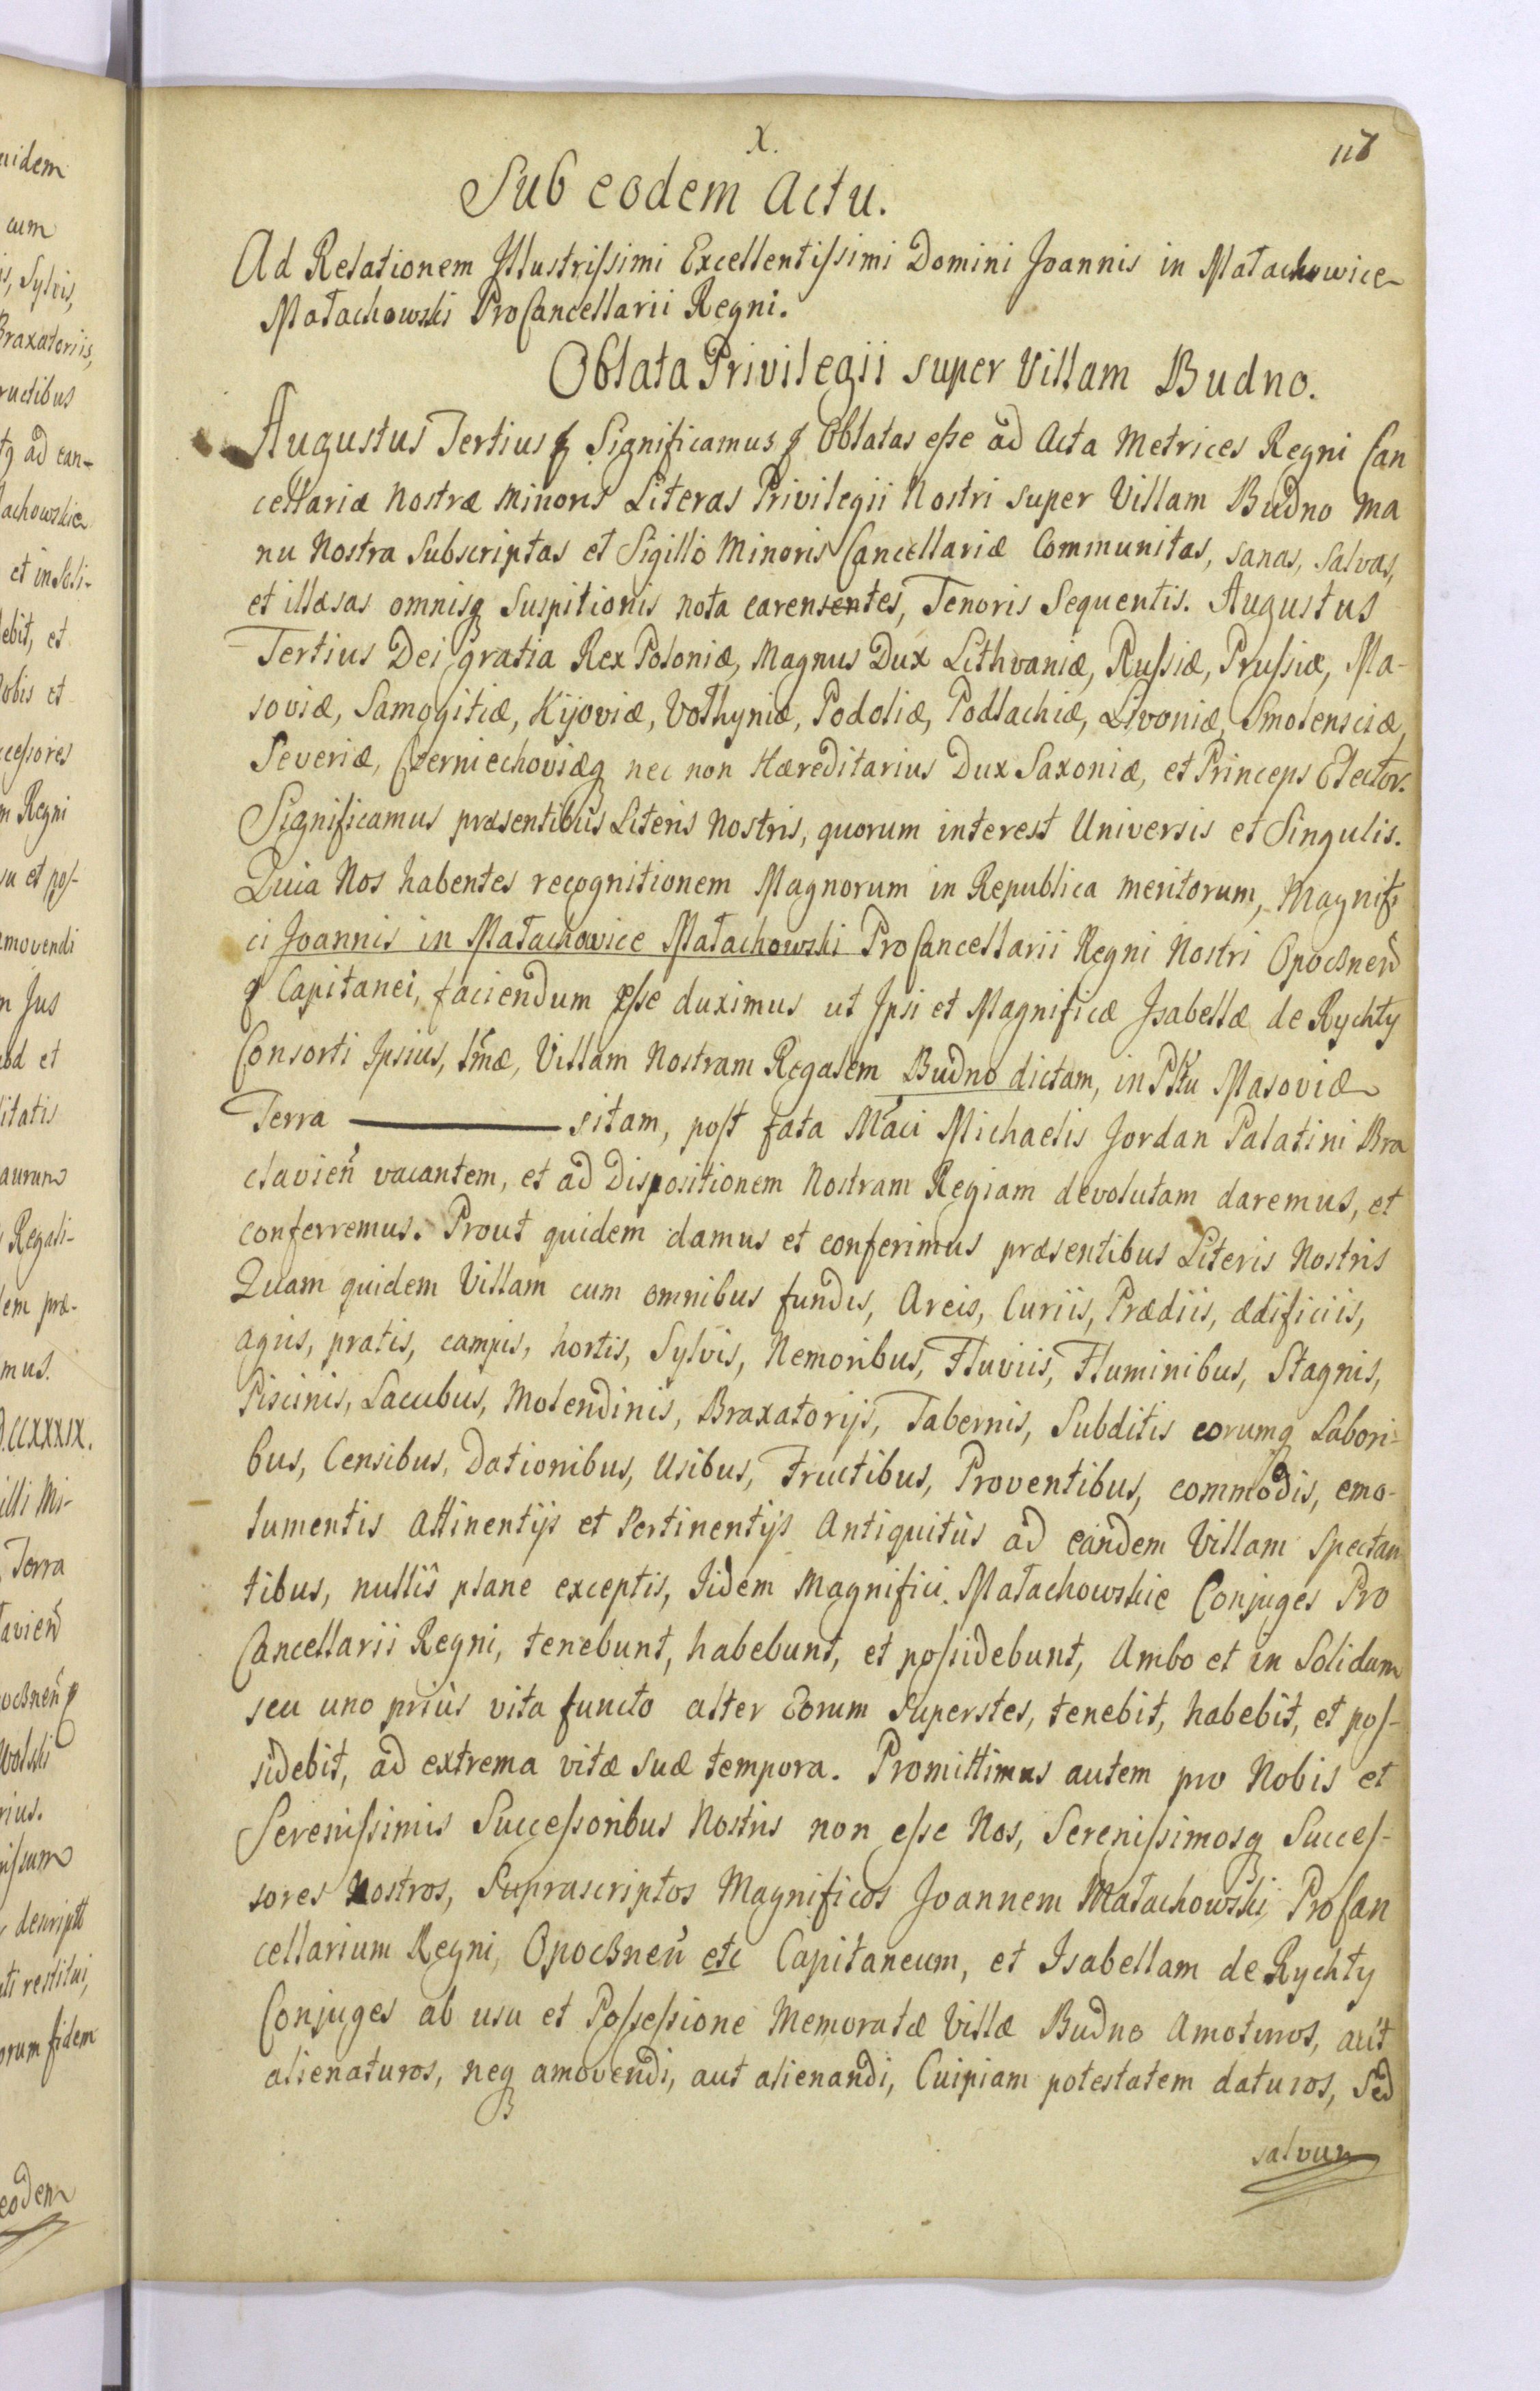 uidem
cum
is, Sylvis,
Braxatoriis,
ructibus
tq ad ean-
lachowskie
et in Soli-
debit, et
Nobis et
ccessores
m Regni
su et pos-
amovendi
m Jus
uod et
litatis
aurum
Regali-
dem præ-
mus.
D.CCXXXIX.
illi Mi-
Terra
tavien
oczneñ
Wolski
rius.
issum
descriptt
uti restitui,
orum fidem
eodem
X.
118
Sub eodem Actu.
Ad Relationem Illustrissimi Excellentissimi Domini Joannis in Małachowice
Małachowski ProCancellarii Regni.
Oblata Privilegii super Villam Budno.
Augustus Tertius Significamus Oblatas esse ad Acta Metrices Regni Can
cellariæ Nostræ Minoris Literas Privilegii Nostri super Villam Budno ma
nu Nostra Subscriptas et Sigillo Minoris Cancellariæ Communitas, sanas, salvas,
et illæsas omnisq Suspitionis nota carensentes, Tenoris Sequentis. Augustus
Tertius Dei gratia Rex Poloniæ, Magnus Dux Lithvaniæ, Russiæ, Prussiæ, Ma-
soviæ, Samogitiæ, Kijoviæ, Volhyniæ, Podoliæ, Podlachiæ, Livoniæ, Smolensciæ,
Severiæ, Czerniechoviæq nec non Hæreditarius Dux Saxoniæ, et Princeps Elector.
Significamus præsentibus Literis Nostris, quorum interest Universis et Singulis.
Quia Nos habentes recognitionem Magnorum in Republica meritorum, Magnifi
ci Joannis in Małachowice Małachowski ProCancellarii Regni Nostri Opoczneñ
Capitanei, faciendum esse duximus ut Ipsi et Magnificæ Isabellæ de Rychty
Consorti Ipsius, Lmæ, Villam Nostram Regalem Budno dictam, in Pttu Masoviæ
Terra ——— sitam, post fata Maci Michaelis Jordan Palatini Bra
clavieñ vacantem, et ad Dispositionem Nostram Regiam devolutam daremus, et
conferremus. Prout quidem damus et conferimus præsentibus Literis Nostris
Quam quidem Villam cum omnibus fundis, Areis, Curiis, Prædiis, ædificiis,
agris, pratis, campis, hortis, Sylvis, Nemoribus, Fluviis, Fluminibus, Stagnis,
Piscinis, Lacubus, Molendinis, Braxatorijs, Tabernis, Subditis eorumq Labori-
bus, Censibus, Dationibus, Usibus, Fructibus, Proventibus, commodis, emo-
lumentis Attinentijs et Pertinentijs Antiquitùs ad eandem Villam spectan
tibus, nullis plane exceptis, Iidem Magnifici Małachowskie Conjuges Pro
Cancellarii Regni, tenebunt, habebunt, et possidebunt, Ambo et in Solidum
seu uno priùs vita functo alter Eorum Superstes, tenebit, habebit, et pos-
sidebit, ad extrema vitæ suæ tempora. Promittimus autem pro Nobis et
Serenissimis Successoribus Nostris non esse Nos, Serenissimosq Succes-
sores Nostros, Suprascriptos Magnificos Joannem Małachowski ProCan
cellarium Regni, Opoczneñ etc Capitaneum, et Isabellam de Rychty
Conjuges ab usu et Possessione Memoratæ Villæ Budno Amoturos, aut
alienaturos, neq amovendi, aut alienandi, Cuipiam potestatem daturos, Sed
salvum